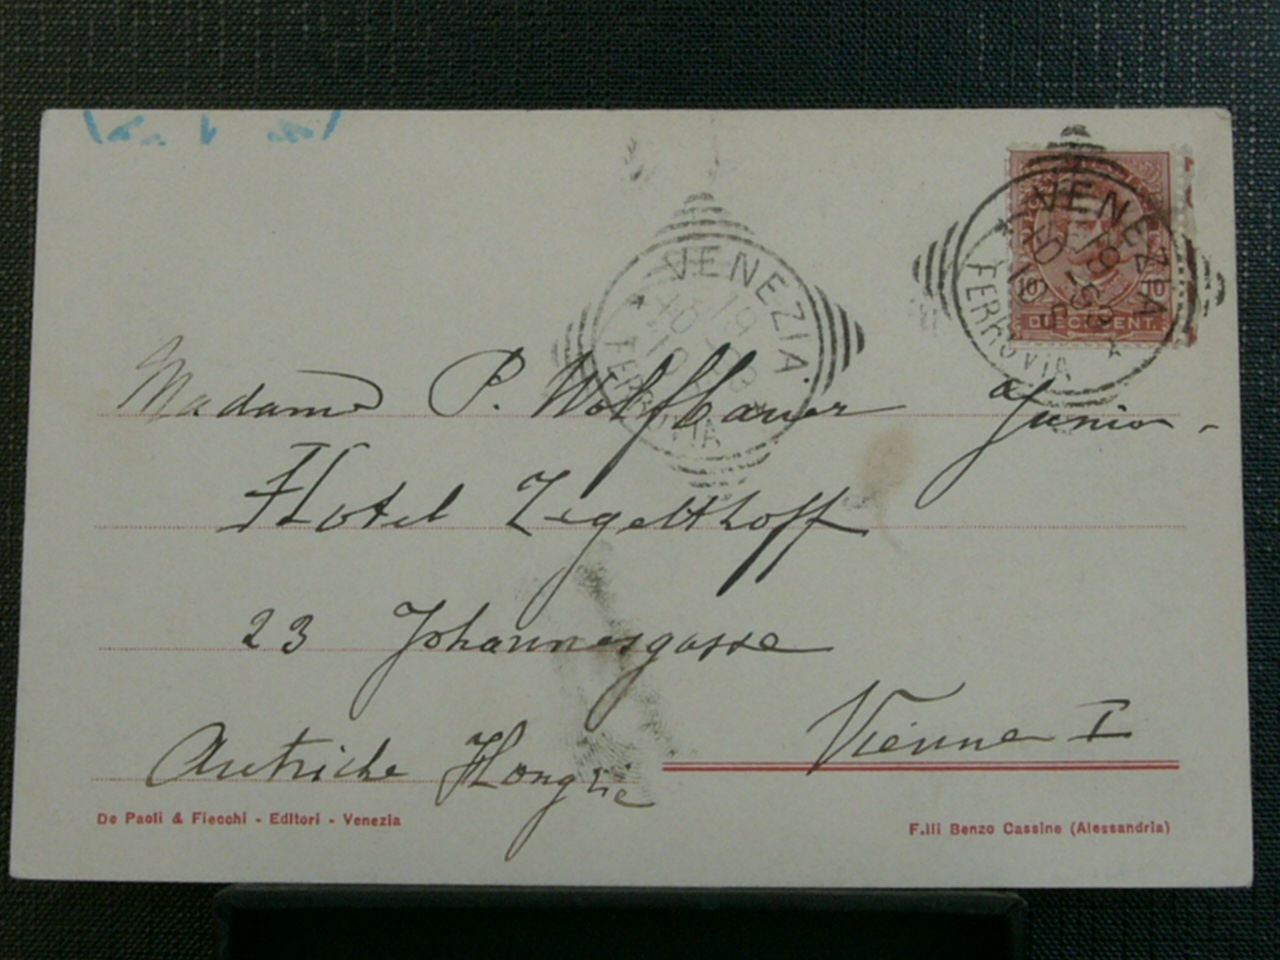 VENEZIA
FERROVIA
VENEZIA
FERROVIA
10 10
DIECI CENT.
Madame P. Wolfbauer Junior
Hotel Zegetthoff
23 Johannesgasse
Vienne I
Autriche Hongrie
De Paoli & Fiecchi - Editori - Venezia
F.lli Benzo Cassine (Alessandria)